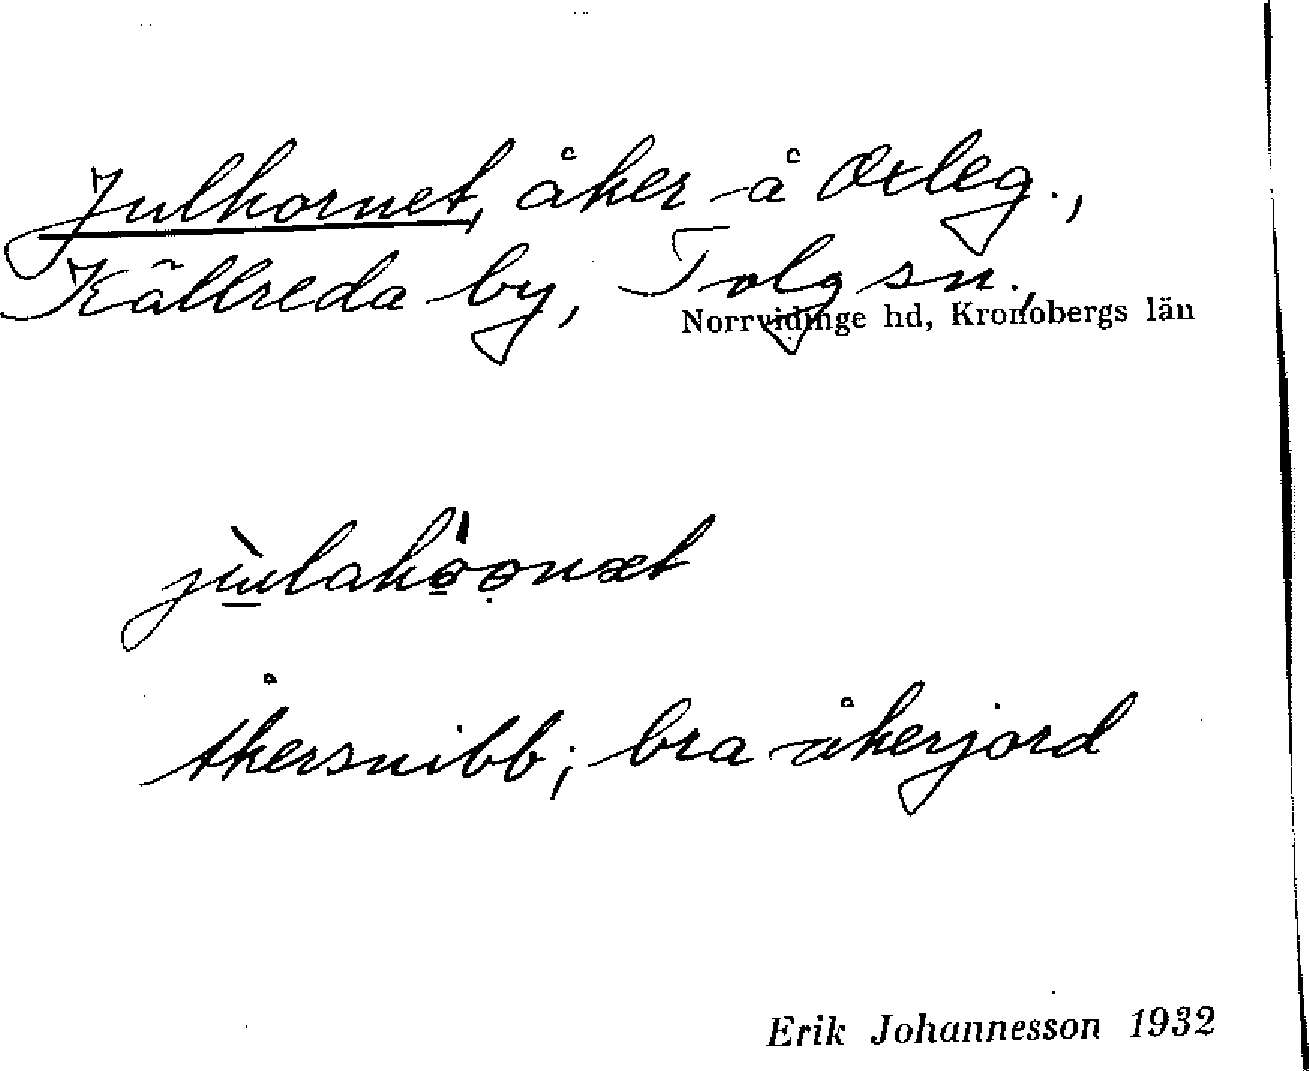 Julhornet, åker å Oxleg.,
Källreda by, Tolg sn.,
Norrvidinge hd, Kronobergs län
Åkersnibb; bra åkerjord
Erik Johannesson 1932